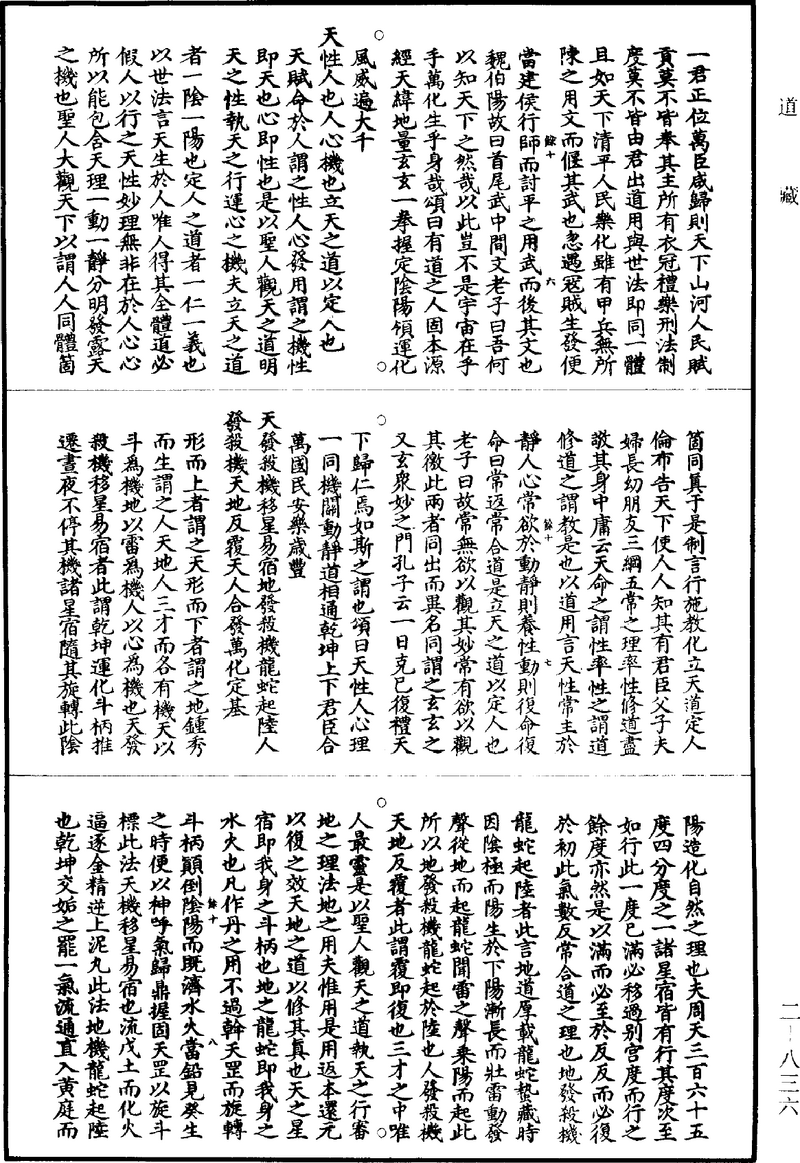 道藏
一君正位萬臣咸歸則天下山河人民賦
貢莫不皆奉其主所有衣冠禮樂刑法制
度莫不皆由君出道用與世法即同一體
且如天下清平人民樂化雖有甲兵無所
陳之用文而偃其武也忽遇冦賊生發便
餘十
六
當建侯行師而討平之用武而後其文也
魏伯陽故曰首尾武中間文老子曰吾何
以知天下之然哉以此豈不是宇宙在乎
手萬化生乎身哉頌曰有道之人固本源
經天緯地量玄玄一拳握定陰陽領運化
風威遍大千
天性人也人心機也立天之道以定人也
天賦命於人謂之性人心發用謂之機性
即天也心即性也是以聖人觀天之道明
天之性執天之行運心之機夫立天之道
者一陰一陽也定人之道者一仁一義也
以世法言天生於人唯人得其全體道必
假人以行之天性妙理無非在於人心心
所以能包含天理一動一靜分明發露天
之機也聖人大觀天下以謂人人同體箇
箇同真于是制言行施教化立天道定人
倫布告天下使人人知其有君臣父子夫
婦長幼朋友三綱五常之理率性修道盡
敬其身中庸云天命之謂性率性之謂道
修道之謂教是也以道用言天性常主於
餘十
七
靜人心常欲於動靜則養性動則復命復
命曰常返常合道是立天之道以定人也
老子曰故常無欲以觀其妙常有欲以觀
其徼此兩者同出而異名同謂之玄玄之
又玄衆妙之門孔子云一日克己復禮天
下歸仁焉如斯之謂也頌曰天性人心理
一同機關動靜道相通乾坤上下君臣合
萬國民安樂歲豐
天發殺機移星易宿地發殺機龍蛇起陸人
發殺機天地反覆天人合發萬化定基
形而上者謂之天形而下者謂之地鍾秀
而生謂之人天地人三才而各有機天以
斗為機地以雷為機人以心為機也天發
殺機移星易宿者此謂乾坤運化斗柄推
遷晝夜不停其機諸星宿隨其旋轉此陰
陽造化自然之理也夫周天三百六十五
度四分度之一諸星宿皆有行其度次至
如行此一度已滿必移過別宮度而行之
餘度亦然是以滿而必至於反反而必復
於初此氣數反常合道之理也地發殺機
龍蛇起陸者此言地道厚載龍蛇蟄藏時
因陰極而陽生於下陽漸長而壯雷動發
聲從地而起龍蛇聞雷之聲乘陽而起此
所以地發殺機龍蛇起於陸也人發殺機
天地反覆者此謂覆即復也三才之中唯
人最靈是以聖人觀天之道執天之行審
地之理法地之用夫惟用是用返本還元
以復之效天地之道以修其真也天之星
宿即我身之斗柄也地之龍蛇即我身之
水火也凡作丹之用不過斡天罡而旋轉
餘十
八
斗柄顛倒陰陽而既濟水火當鉛見癸生
之時便以神呼氣歸鼎握固天罡以旋斗
標此法天機移星易宿也流戊土而化火
逼逐金精逆上泥丸此法地機龍蛇起陸
也乾坤交姤之罷一氣流通直入黃庭而
二-八三六